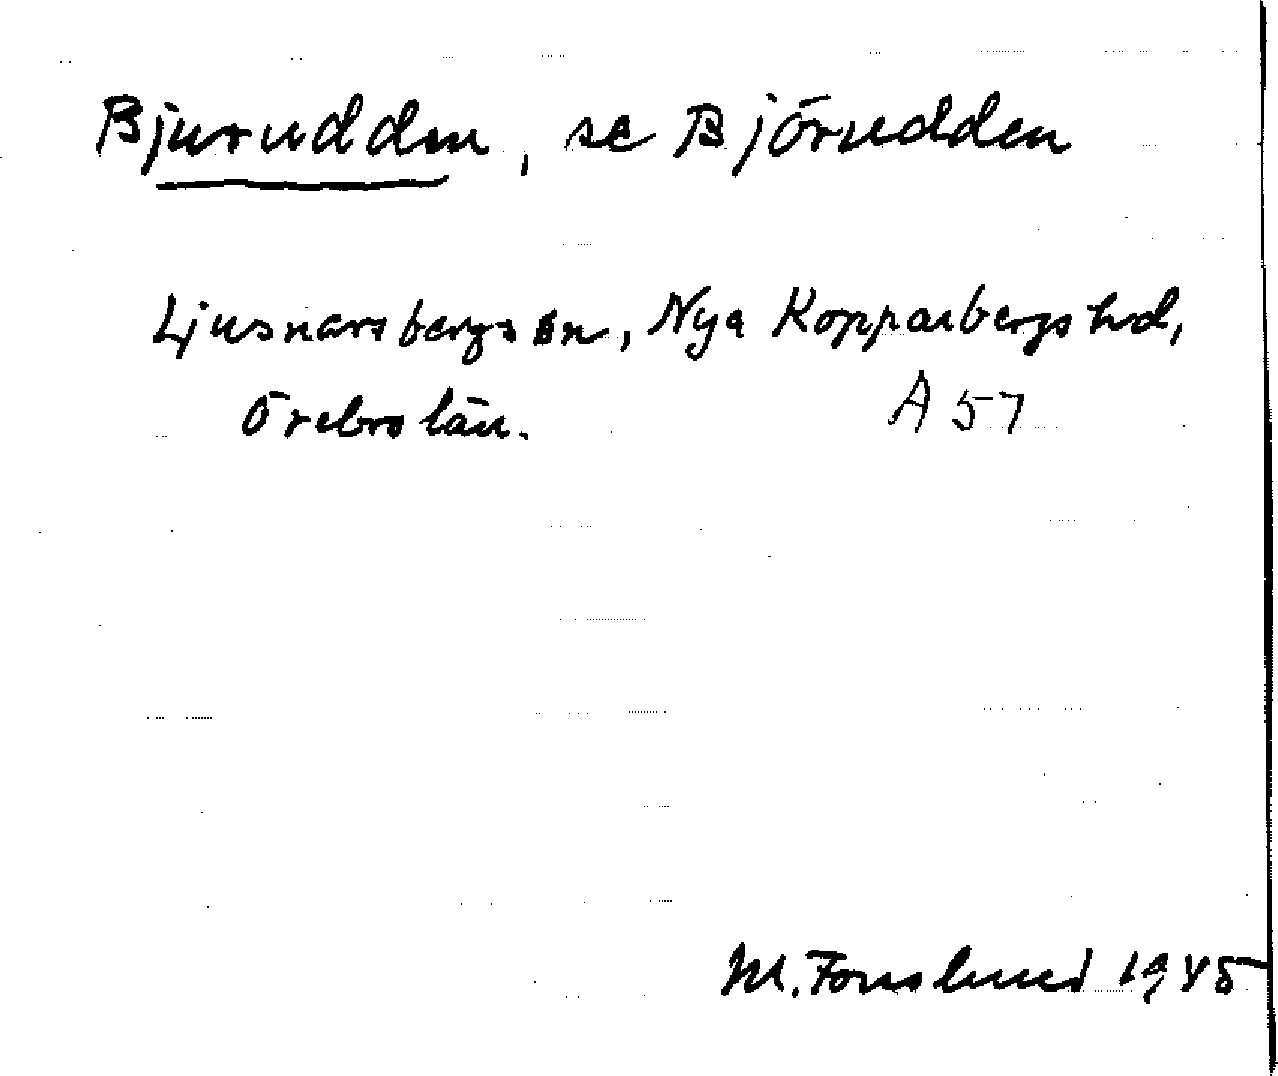 Bjurudden, se Björudden
Ljusnarsbergs sn, Nya Kopparbergs hd,
Örebro län. A 57
M. Fornslund 1945